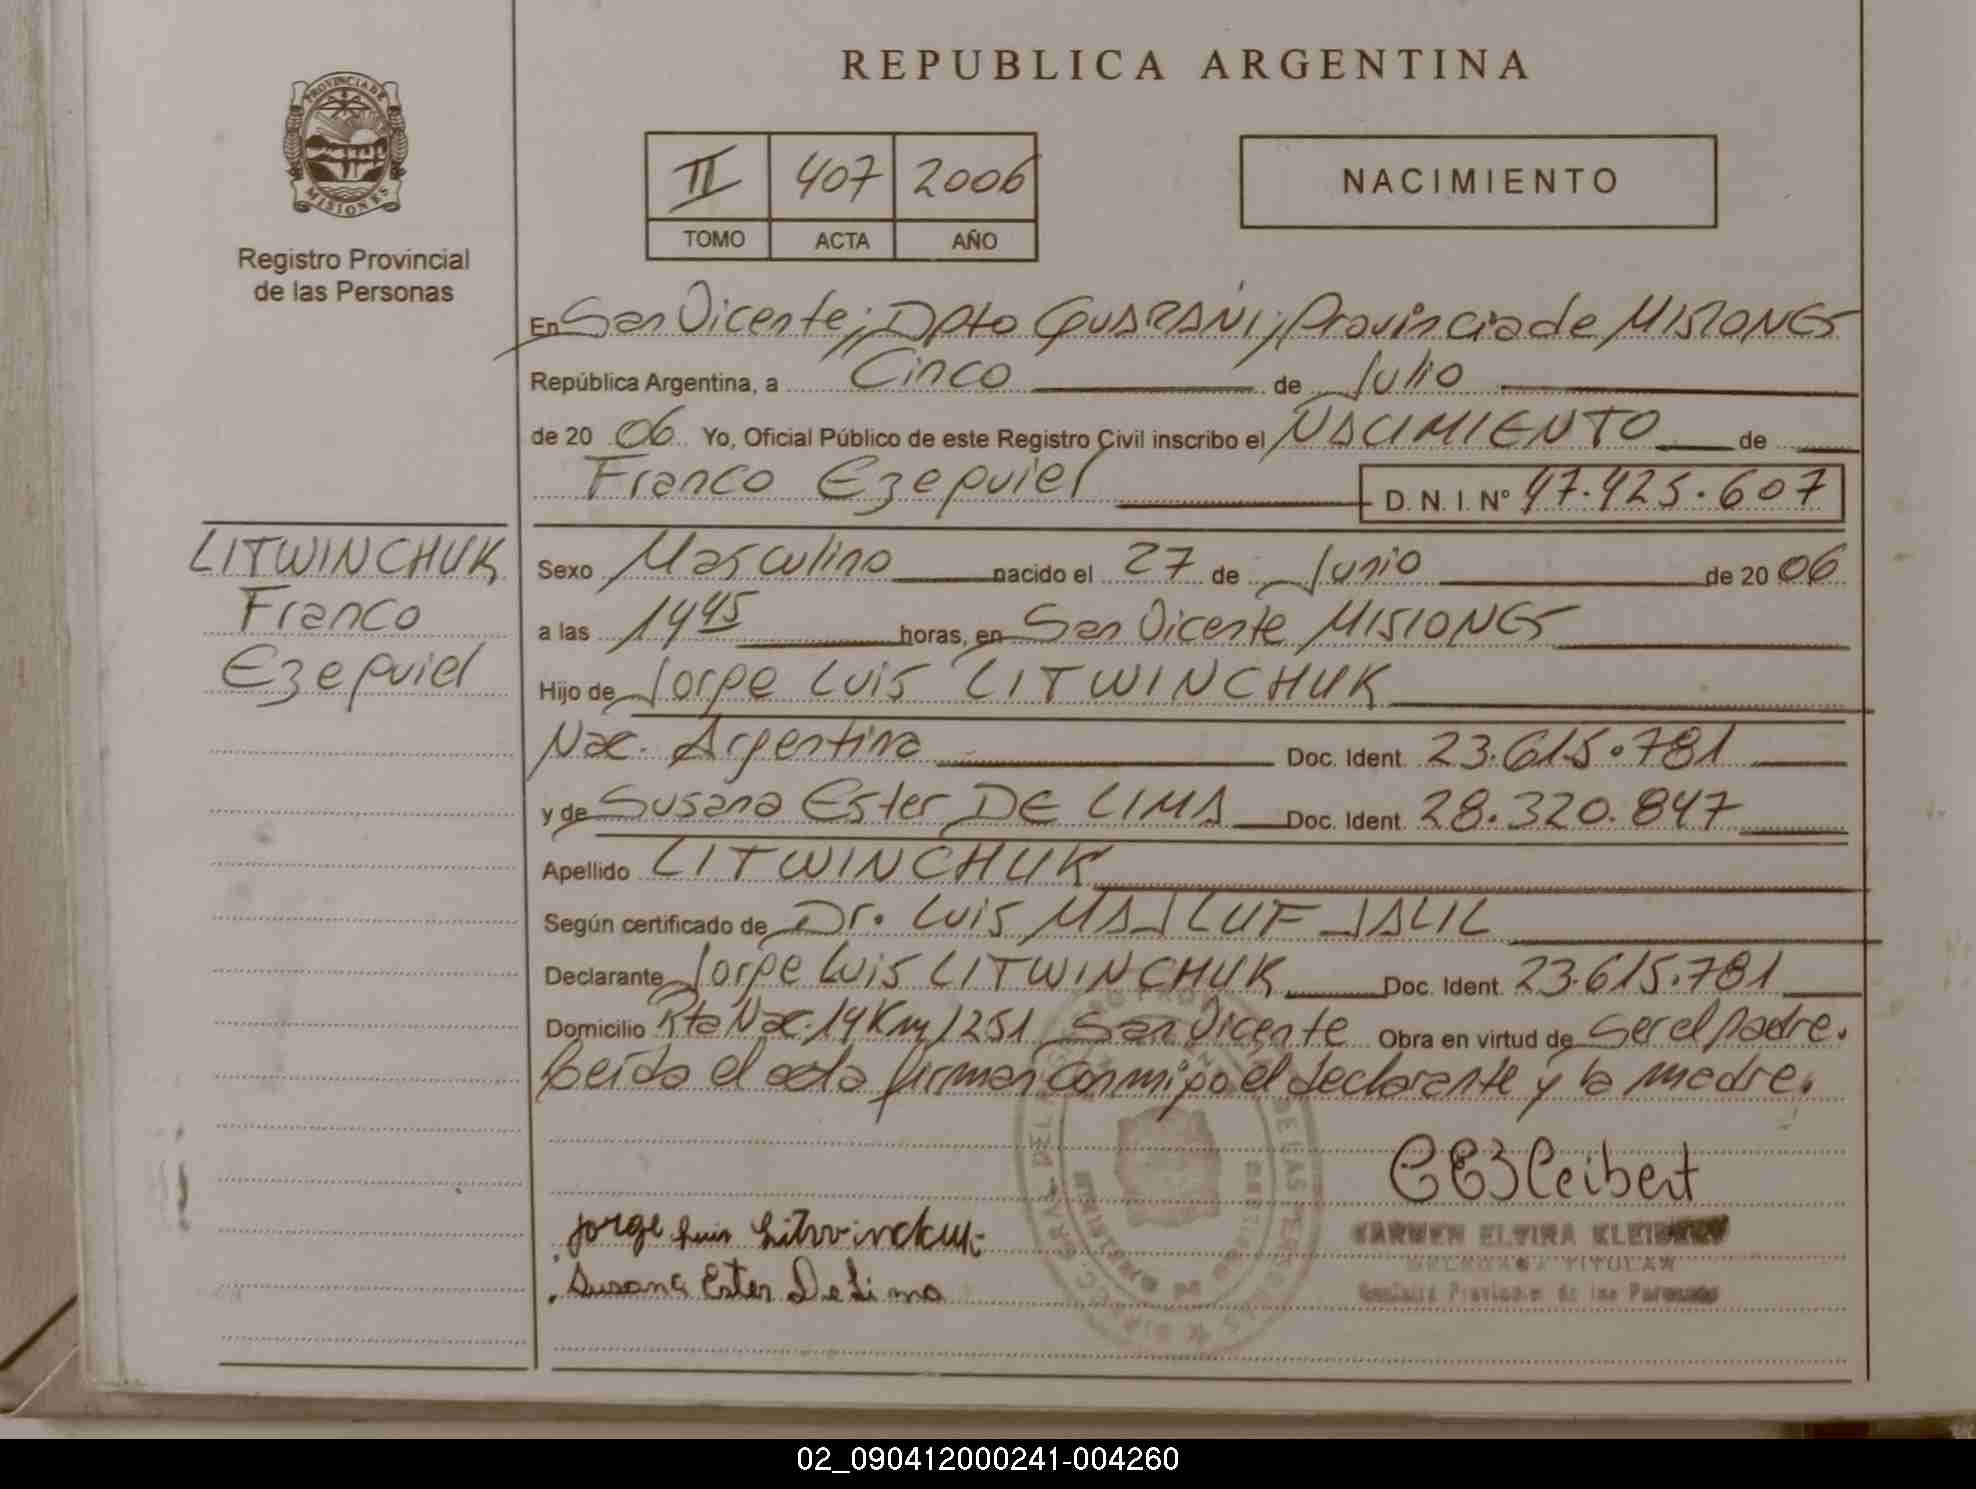 REPUBLICA ARGENTINA
PROVINCIA DE
MISIONES
Registro Provincial
de las Personas
II 407 2006
TOMO ACTA AÑO
NACIMIENTO
En San Vicente; Dpto GUARANI; Provincia de MISIONES
República Argentina, a Cinco de Julio
de 20 06 Yo, Oficial Público de este Registro Civil inscribo el NACIMIENTO de
Franco Ezequiel D. N. I. Nº 47.425.607
LITWINCHUK
Franco
Ezequiel
Sexo Masculino nacido el 27 de Junio de 20 06
a las 14 45 horas, en San Vicente MISIONES
Hijo de Jorge Luis LITWINCHUK
Nac. Argentina Doc. Ident. 23.615.781
y de Susana Ester DE LIMA Doc. Ident. 28.320.847
Apellido LITWINCHUK
Según certificado de Dr. Luis MAJLUF JALIL
Declarante Jorge Luis LITWINCHUK Doc. Ident. 23.615.781
Domicilio Rta Nac. 14 Km 1251 San Vicente Obra en virtud de Ser el padre.
Leida el acta firman conmigo el declarante y la madre.
Jorge Luis Litwinchuk
Susana Ester De Lima
KARMEN ELVIRA
TITULAR
02_090412000241-004260